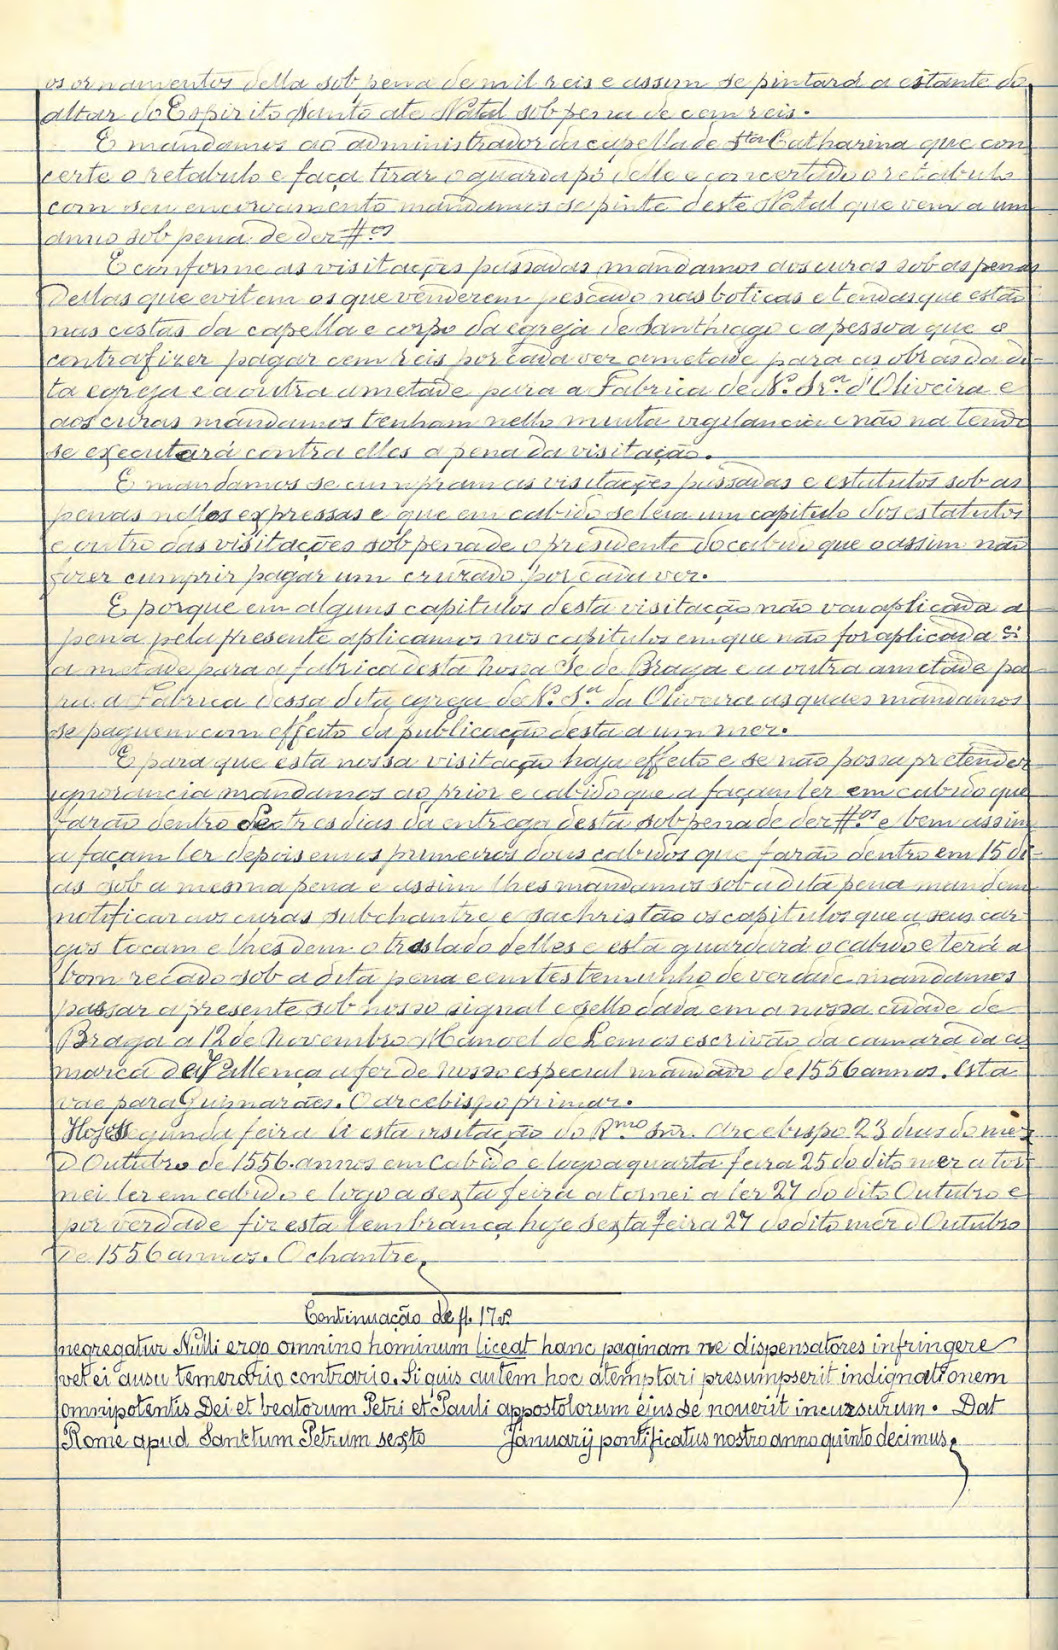 os ornamentos della sob pena de mil reis e assim se pintará a estante do
altar do Espirito Santo ate Natal sob pena de cem reis.
E mandamos ao administrador da capella de Sta Catharina que con
certe o retabulo e faça tirar o guarda pó delle e concertado o retabulo
com seu encorvamento mandamos se pinte deste Natal que vem a um
anno sob pena de dez #os
E conforme as visitações passadas mandamos aos curas sob as penas
dellas que evitem os que venderem pescado nas boticas e tendas que estão
nas costas da capella e corpo da egreja de Santhiago e a pessoa que o
contrafizer pagar cem reis por cada vez ametade para as obras da di-
ta egreja e a outra ametade para a Fabrica de N.ª Sr.ª d'Oliveira e
aos curas mandamos tenham nello muita vigilancia e não na tendo
se executará contra elles a pena da visitação.
E mandamos se cumpram as visitações passadas e estatutos sob as
penas nelles expressas e que em cabido se leia um capitulo dos estatutos
e outro das visitações sob pena de o presidente do cabido que o assim não
fizer cumprir pagar um cruzado por cada vez.
E porque em alguns capitulos desta visitação não vai aplicada a
pena pela presente aplicamos nos capitulos em que não for aplicada si
a metade para a fabrica desta nossa Se de Braga e a outra ametade pa
ra a Fabrica dessa dita egreja de N.ª S.ra da Oliveira as quaes mandamos
se paguem com effeito da publicação desta a um mez.
E para que esta nossa visitação haja effeito e se não possa pretender
ignorancia mandamos ao prior e cabido que a façam ler em cabido que
farão dentro de tres dias da entrega desta sob pena de dez #os e bem assim
a façam ler depois em os primeiros dous cabidos que farão dentro em 15 di-
as sob a mesma pena e assim lhes mandamos sob a dita pena mandem
notificar aos curas subchantre e sachristão os capitulos que a seus car
gos tocam e lhes dem o traslado delles e esta guardará o cabido e terá a
bom recado sob a dita pena e em testemunho de verdade mandamos
passar a presente sob nosso signal e sello dada em a nossa cidade de
Braga a 12 de Novembro Manoel de Lemos escrivão da camara da co
marca de Vallença a fez de nosso especial mandado de 1556 annos. Esta
vae para Guimarães. O arcebispo primaz.
Hoje segunda feira li esta visitação do Rmo Snr. Arcebispo 23 dias do mez
d'Outubro de 1556 annos em Cabido e logo a quarta feira 25 do dito mez a tor
nei ler em cabido e logo a sexta feira a tornei a ler 27 do dito Outubro e
por verdade fiz esta lembrança hoje sexta feira 27 do dito mez d'Outubro
de 1556 annos. O chantre,
Continuação de fl. 17 vº
negregatur Nulli ergo omnino hominum liceat hanc paginam ne dispensatores infringere
vel ei ausu temerario contrario. Si quis autem hoc atemptari presumpserit indignationem
omnipotentis Dei et beatorum Petri et Pauli appostolorum ejus se noverit incursurum. Dat
Rome apud Sanctum Petrum sexto Januarij pontificatus nostro anno quinto decimus.